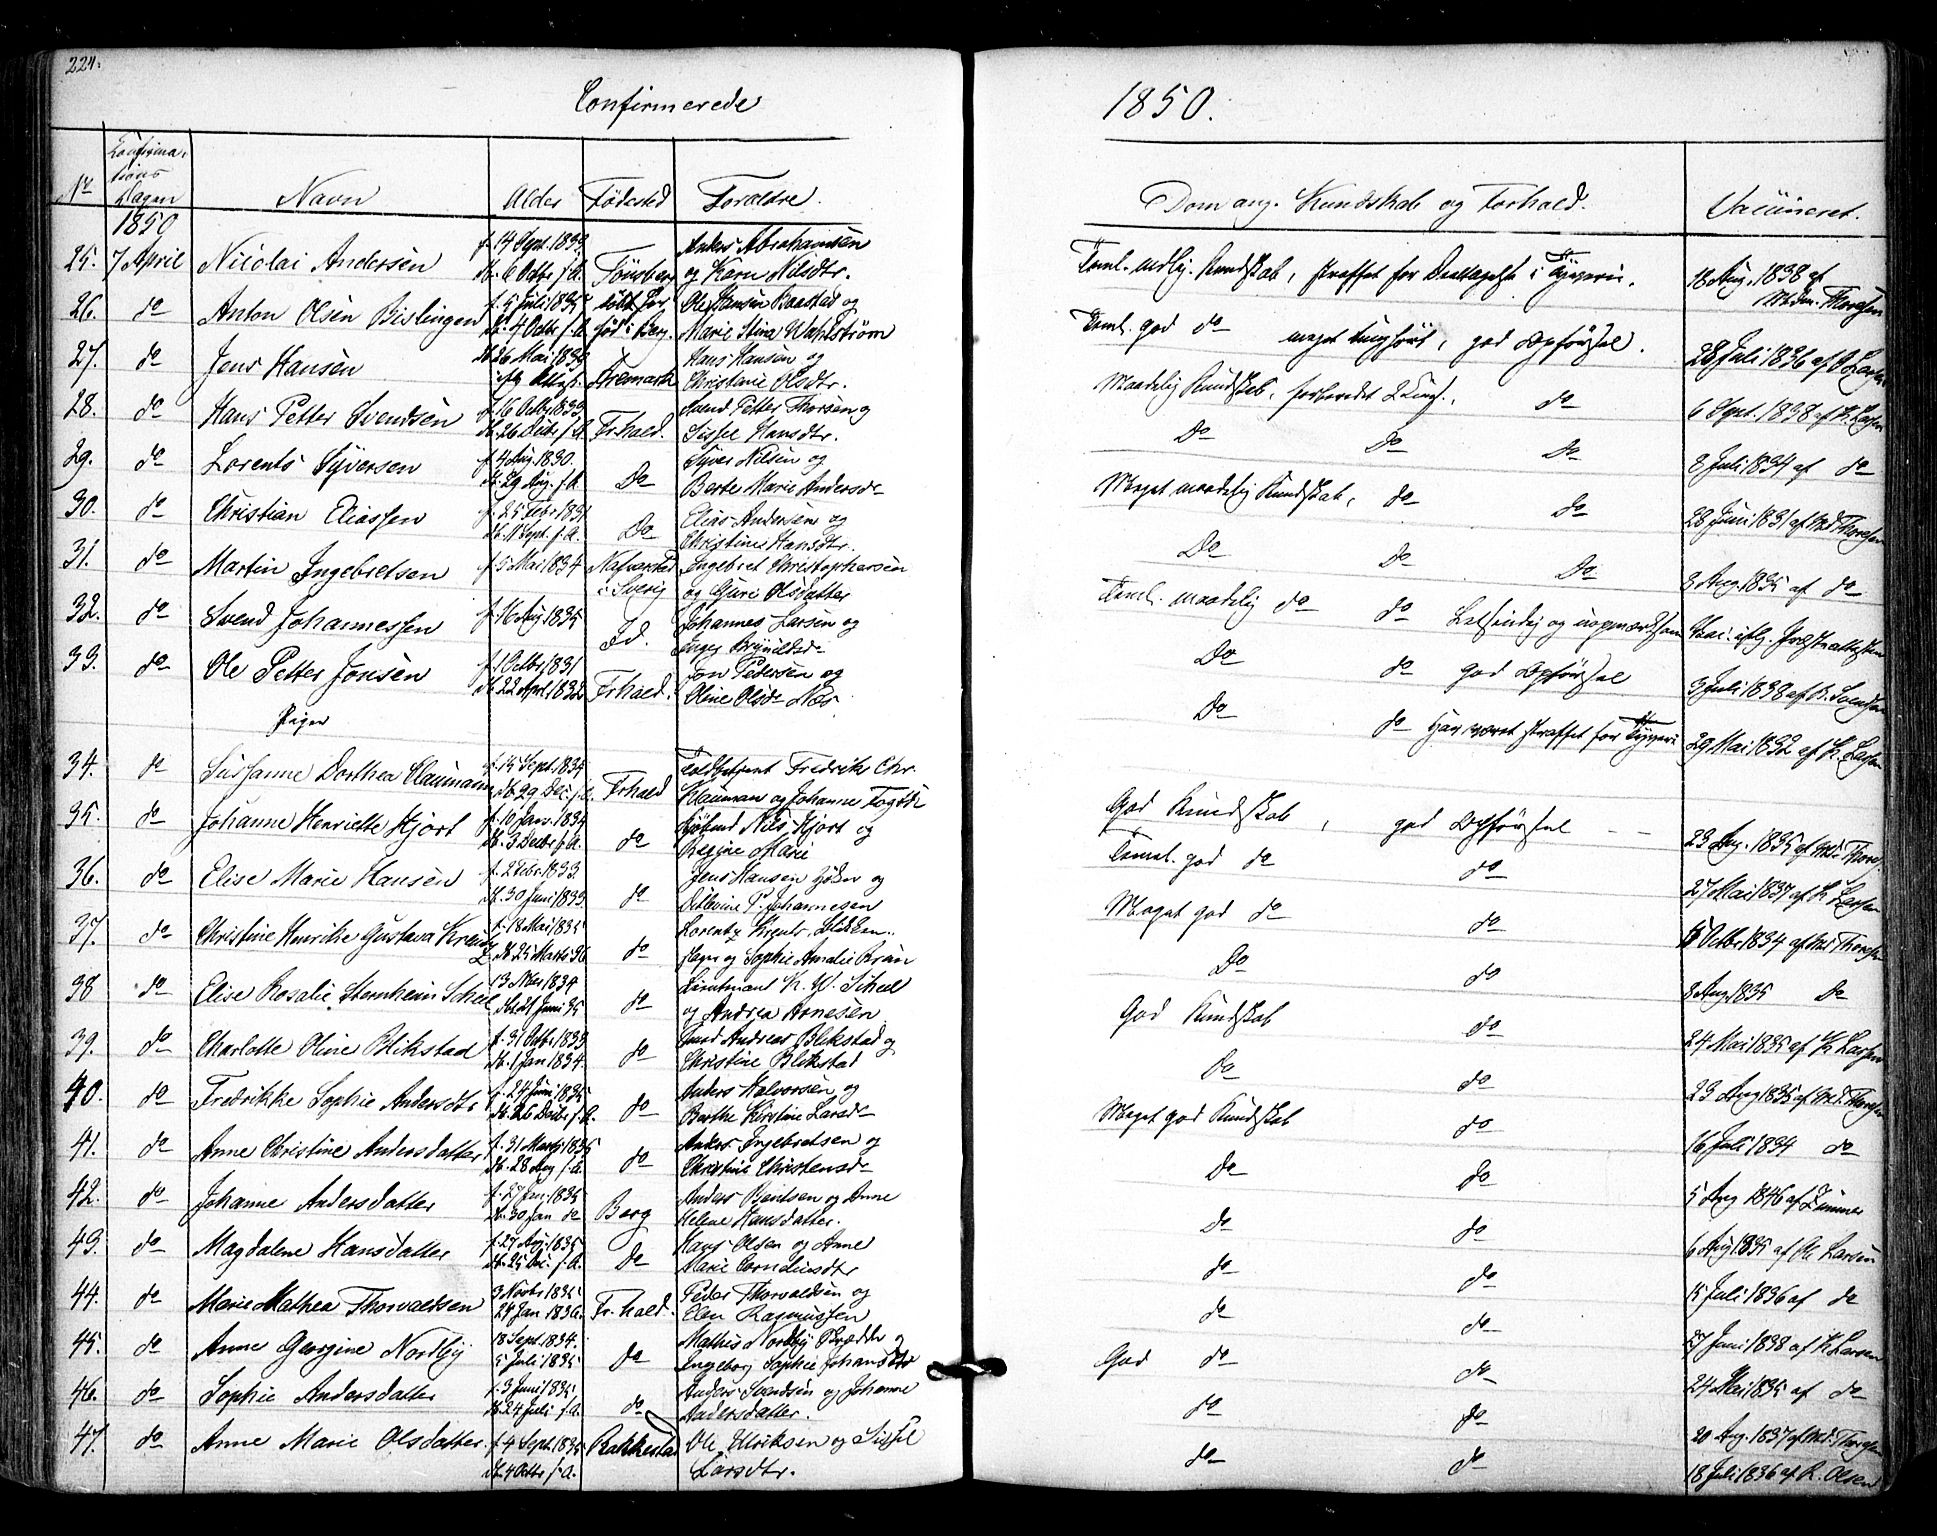 224.
Confirmerede
1850.
No Confirmations Dagen Navn Alder Fødested Forældre. Dom ang. Kundskab og Forhold. Vacineret.
1850
25. 7 April Nicolai Andersen f. 14 Sept. 1833 Anders Abrahamsen
db. 6 Octbr s.A. Tönsberg og Karn Nilsdtr. Teml. mdlg. Kundskab, straffet for Deeltagelse i Tyveri. 18 Aug. 1838 af Md. Thoresen
26. do Anton Olsen Bislingen f. 5 Juli 1835 Ole Hansen Baastad og
db. 4 Octbr s.A. fød i Berg. Marie Stina Wahlström Teml. god do meget tunghört, god Opförsel. 28 Juli 1836 af O Larsen
27. do Jens Hansen 26 Mai 1833 Aremark Hans Hansen og
Christine Olsdtr. Maadelig Kundskab, do 6 Sept. 1838 af K. Larsen
28. do Hans Petter Svendsen f. 16 Octbr 1833 Svend Petter Thorsen og
db. 26 Decbr s.A. Frhald. Sissel Hansdtr. Do Do Do 8 Juli 1834 af do
29. do Lorents Syversen f 4 Aug. 1830. Syver Nilsen og
db. 29 Aug. s.A. Do Berte Marie Andersdr Meget maadelig Kundskab, do do 28 Juni 1831 af Md. Thoresen
30. do Christian Eliassen f. 25 Febr 1831 Elias Andersen og
db. 11 Sept. s.A. Do Christine Hansdtr. Do Do Do 3 Aug. 1835 af do
31. do Martin Ingebretsen f 5 Mai 1834 Nafverstad i Sverig Ingebret Christophersen
og Guri Olsdatter Teml. maadelig do do Letsindig og uopmærksom Vac. iflg. Præsteattesten
32. do Svend Johannessen f. 16 Aug 1835 Id. Johannes Larsen og
Inger Brynildsdr Do do god Opförsel 3 Juli 1838 af K. Svendsen
33. do Ole Petter Jonsen f. 1 Octbr 1831 Jon Pedersen og
db. 22 April 1832 Frhald. Oline Olsdr Næs Do do Har været straffet for Tyveri 29 Mai 1832 af K. Larsen
Piger
34. do Sussanne Dorthea Claumann f. 15 Sept. 1834 Toldbetjent Fredrik Chr.
db. 29 Dec. s.A. Frhald Klauman og Johanne God Kundskab, god Opförsel 23 Aug. 1835 af Md. Thors.
35. do Johanne Henriette Hjort f. 10 Janr. 1834 Nils Hjort og
db. 3 Decbr s.A. do Regine Marie Teml. god do do 27 Mai 1837 af K Larsen
36. do Elise Marie Hansen f. 2 Febr. 1833 Jens Hansen og
db. 30 Juni 1833 do P. Johannesen Meget god do do Octbr 1834 af Md. Thoresen
37. do Christine Henrike Gustava Krentz f. 18 Mai 1835 Lorentz Krentz,
db. 25 Marts 36 do og Sophie Amalie Brun Do do 3 Aug. 1835 Do
38 do Elise Rosalie Sternheim Scheel 13 Nbr 1834 Lieutnant K. W. Scheel
db. 21 Juni 35 do og Andrea Arnesen God Kundskab do 24 Mai 1835 af K Larsen
39. do Charlotte Oline Blikstad f. 31 Octbr 1833 Andreas Blikstad og
db. 1 Jan 1834. do Christine Blikstad Do do 23 Aug 1835 af Md. Thoresen
40. do Fredrikke Sophie Andersdtr f. 24 Juni 1835 Anders Halvorsen og
db. 26 Decbr s.A. do Berthe Kirstine Larsdr Meget god Kundskab do 16 Juli 1834 do
41. do Anne Christine Andersdatter f. 31 Marts 1835 Anders Ingebretsen og
db. 28 Aug s.A. do Christine Christensdr Do Do 5 Aug 1846 af Zimmer
42. do Johanne Andersdatter f. 27 Jan. 1835 Anders Bentsen og Anne
db. 30 Jan do Berg Helene Hansdatter. Do do 6 Aug 1835 af Ole Larsen
43. do Magdalene Hansdatter f. 27 Aug. 1835 Hans Olsen og Anne
db. 25 Dec. s.A. Do Marie Cornelinsdtr do do 15 Juli 1836 af do
44. do Marie Mathea Thorvaldsen 3 Novbr 1835 Peder Thorvaldsen og
24 Jan 1836. Frhald. Elen Rasmussen do do 27 Juni 1838 af K Larsen
45. do Anne Georgine Nordby 18 Sept. 1834. Mathis Nordby og
5 Juli 1835 Do Ingeborg Sophie Johansdtr God do do 24 Mai 1835 af do
46. do Sophie Andersdatter f. 3 Juni 1835 Anders Svendsen og Johanne
db. 24 Juli s.A. do Andersdatter. do do 20 Aug. 1837 af Md. Thoresen
47. do Anne Marie Olsdatter. f. 4 Sept. 1835 Rakkestad Ole Ulriksen og Sissel
db. 4 Octbr s.A. Larsdtr. do do 18 Juli 1836 af R. Olsen